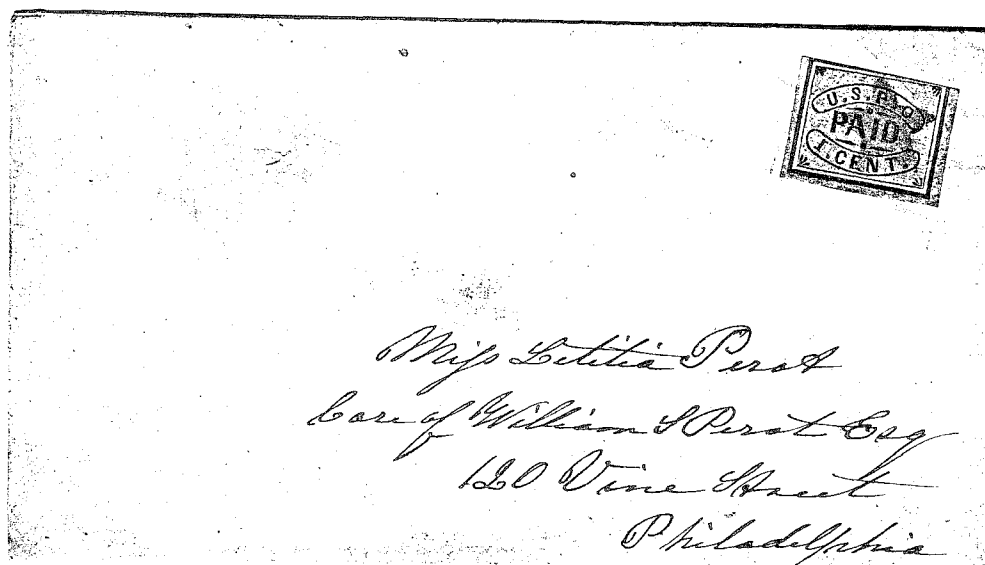 U.S.P.O.
PAID
1.CENT.
Miss Letitia Perot
Care of William S Perot Esq
120 Vine Street
Philadelphia